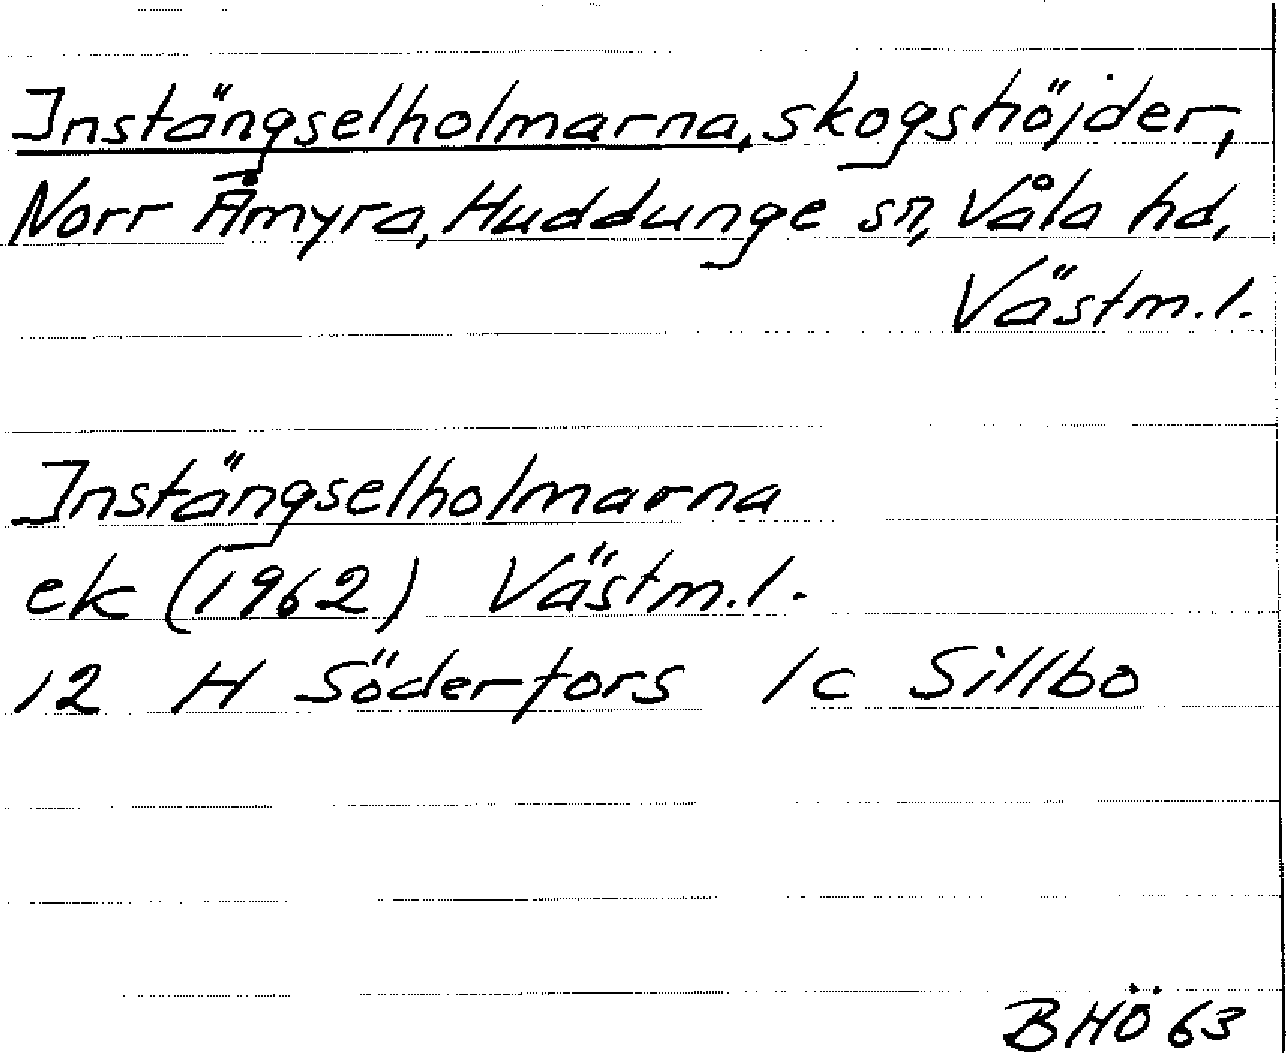 Instängselholmarna, skogshöjder,
Norr Åmyra, Huddunge sn, Våla hd,
Västm.l.
Instängselholmarna
ek (1962) Västm.l.
12 H Söderfors 1c Sillbo
BHÖ 63